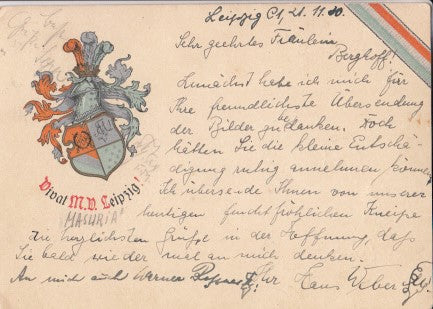 Leipzig C1, 21. 11. 30.
Sehr geehrtes Fräulein
Berghoff!
Zunächst habe ich mich für
Ihre freundlichste Übersendung
der Bilder zu bedanken. Doch
hätten Sie die kleine Entschä-
digung ruhig annehmen können.
Ich übersende Ihnen von unserer
heutigen feuchtfröhlichen Kneipe
die herzlichsten Grüße in der Hoffnung, daß
Sie bald wieder mal an mich denken.
Ihr Hans Weber
An mich auch Werner
Vivat M.V. Leipzig!
MASURIA